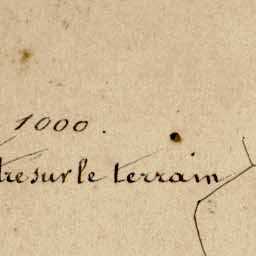 1000.
tre sur le terrain